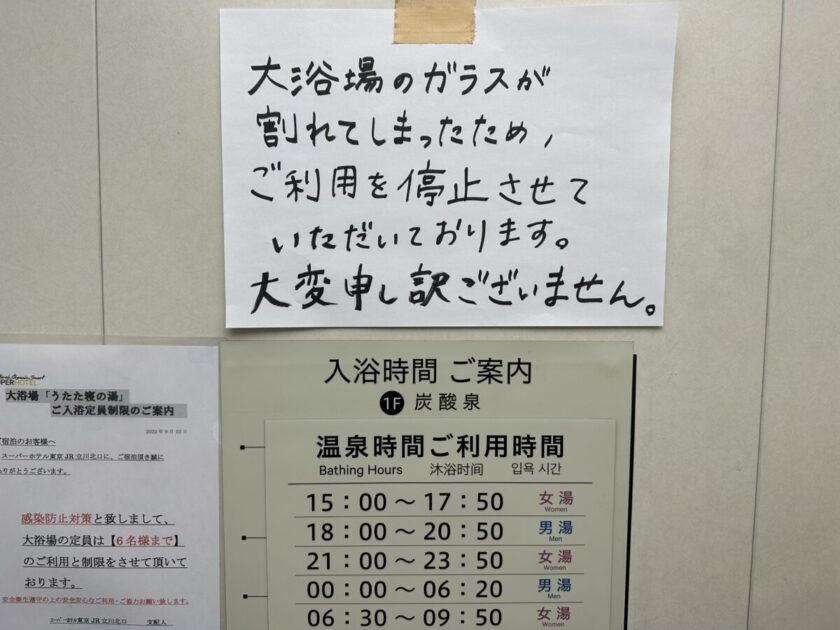 大浴場のガラスが
割れてしまったため,
ご利用を停止させて
いただいております。
大変申し訳ございません。
入浴時間 ご案内
1F 炭酸泉
温泉時間ご利用時間
Bathing Hours 沐浴时间 입욕 시간
15:00～17:50 女湯 Women
18:00～20:50 男湯 Men
21:00～23:50 女湯 Women
00:00～06:20 男湯 Men
06:30～09:50 女湯 Women
PERHOTEL
大浴場「うたた寝の湯」
ご入浴定員制限のご案内
ご宿泊のお客様へ
スーパーホテル東京JR立川北口に、ご宿泊頂き誠に
ありがとうございます。
感染防止対策と致しまして、
大浴場の定員は【6名様まで】
のご利用と制限をさせて頂いて
おります。
安全衛生遵守の上の安全安心なご利用・ご協力お願い致します。
スーパーホテル東京JR立川北口 支配人